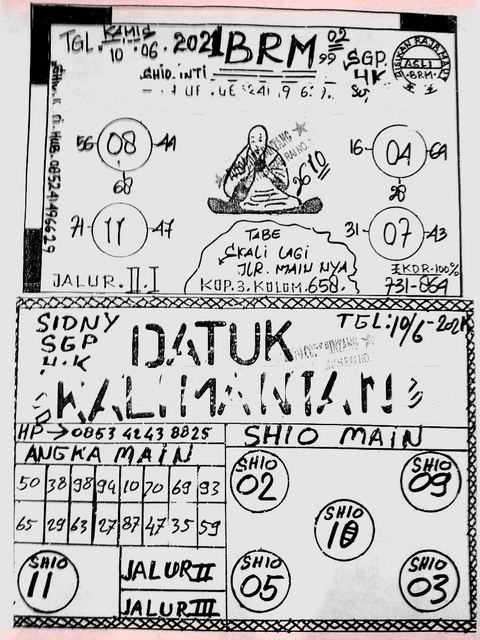 TGL. KAMIS 10.06.2021 BRM 02 99 SGP. 4K
ASLI
BRM
SHIO.INTI
56 08 44
68
16 04 64
28
2670
71 11 47
31 07 43
JALUR.II.I
TABE
SKALI LAGI
JLR. MAIN NYA
KOP.3.KOLOM.658.
EKOR.100%
731-864
SIDNY
SGP
4.K
DATUK
KALIMANTAN
TEL:10/6-202K
HP→0853 4243 8825
ANGKA MAIN
50 38 98 94 10 70 69 93
65 29 63 27 87 47 35 59
SHIO MAIN
SHIO 02
SHIO 09
SHIO 10
SHIO 11
JALUR II
JALUR III
SHIO 05
SHIO 03